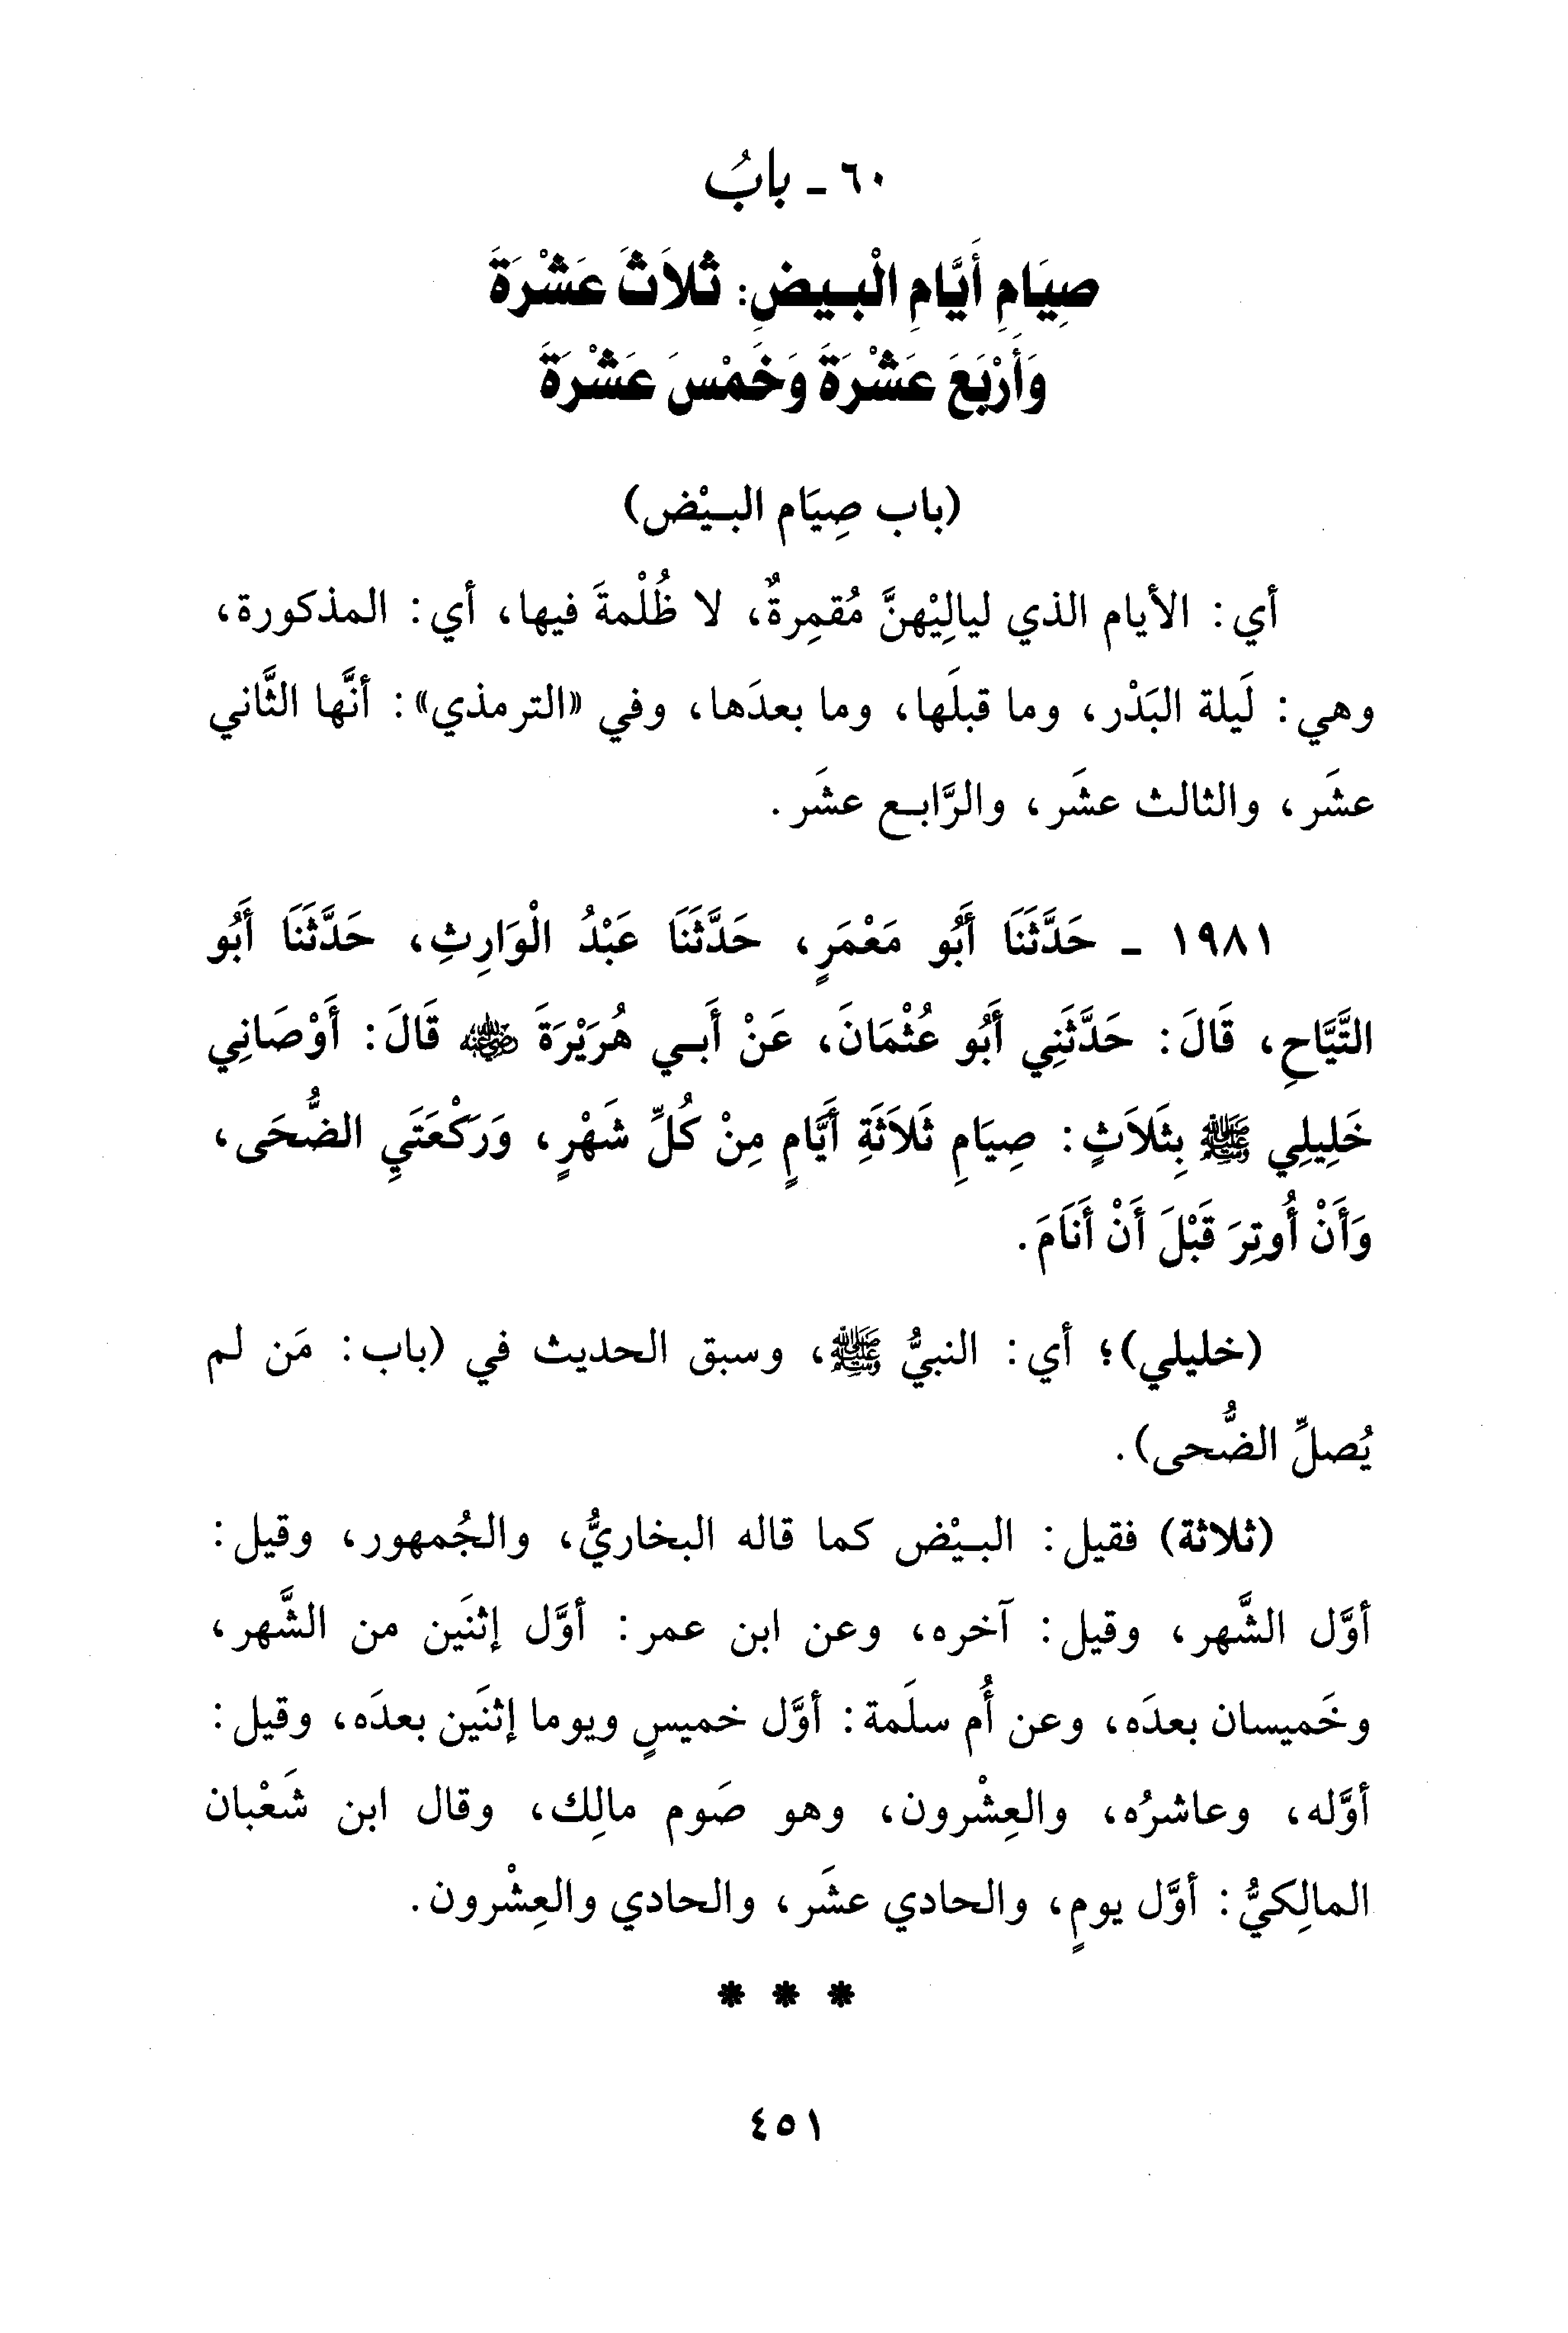 ٦٠ - بابُ
صِيَامِ أَيَّامِ الْبيضِ: ثَلاَثَ عَشْرَةَ
وَأَرْبَعَ عَشْرَةَ وَخَمْسَ عَشْرَةَ
(باب صِيَام البيْض)
أي: الأيام الذي ليالِيْهنَّ مُقمِرةٌ، لا ظُلْمةَ فيها، أي: المذكورة،
وهي: لَيلة البَدْر، وما قبلَها، وما بعدَها، وفي «الترمذي»: أنَّها الثَّاني
عشَر، والثالث عشَر، والرَّابع عشَر.
١٩٨١ - حَدَّثَنَا أَبُو مَعْمَرٍ، حَدَّثَنَا عَبْدُ الْوَارِثِ، حَدَّثَنَا أَبُو
التَّيَّاحِ، قَالَ: حَدَّثَنِي أَبُو عُثْمَانَ، عَنْ أَبي هُرَيْرَةَ ﵁ قَالَ: أَوْصَانِي
خَلِيلِي ﷺ بِثَلاَثٍ: صِيَامِ ثَلاَثَةِ أَيَّامٍ مِنْ كُلِّ شَهْرٍ، وَرَكْعَتَيِ الضُّحَى،
وَأَنْ أُوتِرَ قَبْلَ أَنْ أَنَامَ.
(خليلي)؛ أي: النبيُّ ﷺ، وسبق الحديث في (باب: مَن لم
يُصلِّ الضُّحى).
(ثلاثة) فقيل: البيْض كما قاله البخاريُّ، والجُمهور، وقيل:
أوَّل الشَّهر، وقيل: آخره، وعن ابن عمر: أوَّل إثنَين من الشَّهر،
وخَميسان بعدَه، وعن أُم سلَمة: أوَّل خميسٍ ويوما إثنَين بعدَه، وقيل:
أوَّله، وعاشرُه، والعِشْرون، وهو صَوم مالِك، وقال ابن شَعْبان
المالِكيُّ: أوَّل يومٍ، والحادي عشَر، والحادي والعِشْرون.
* * *
٤٥١